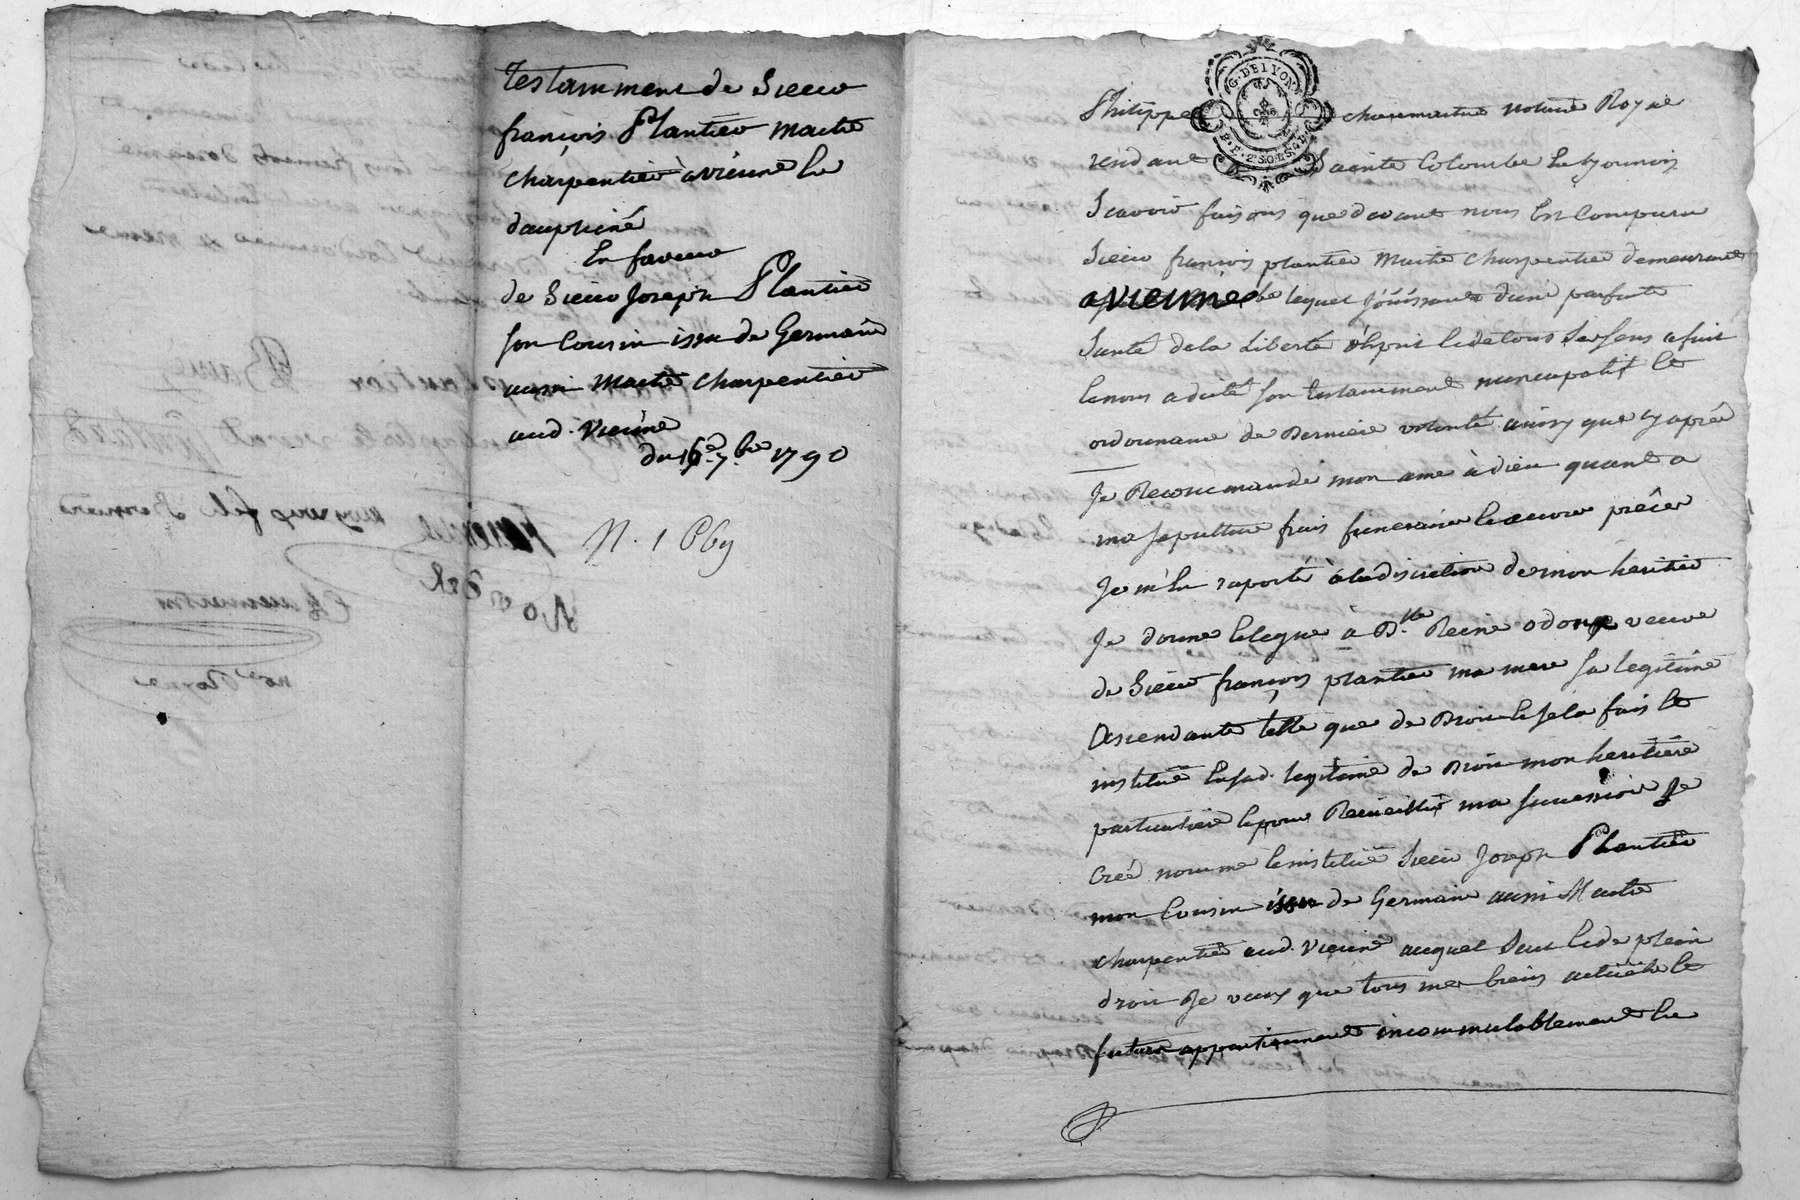 testamment de Sieur
françois Plantier maitre
charpentier à vienne en
dauphiné
En faveur
de Sieur Joseph Plantier
son cousin issu de Germain
aussi maitre charpentier
aud. Vienne
du 16e 7bre 1790
N. 1
Philippe chavermaitre notaire Royal
résidant Sainte Colombe Les Lyonnois
Scavoir faisons que devant nous Est Comparu
Sieur françois plantier maitre charpentier demeurant
a vienne lequel Jouissant d'une parfaite
Santé de la Liberté d'Esprit et de tous Ses sens a fait
et nous a dicté Son testamment nuncupatif et
ordonnance de Derniere volonté ainsy que cy après
Je Recommande mon ame à dieu quant a
ma sepulture frais funeraire et œuvres pies
Je m'En raporte à la discretion de mon heritier
Je donne et legue a Dlle Reine veuve
de Sieur françois plantier ma mere sa legitime
Ascendante telle que de Droit Et sela fais et
institue En sad. legitime de Droit mon heritiere
particuliere et pour Recueillir ma succession Je
Créé nomme et institue Sieur Joseph Plantier
mon Cousin issu de Germain aussi Maitre
charpentier aud. Vienne auquel Seul et de plein
droit Je veux que tous mes biens actuels et
futurs appartiennent incommutablement En
G. DE LYON